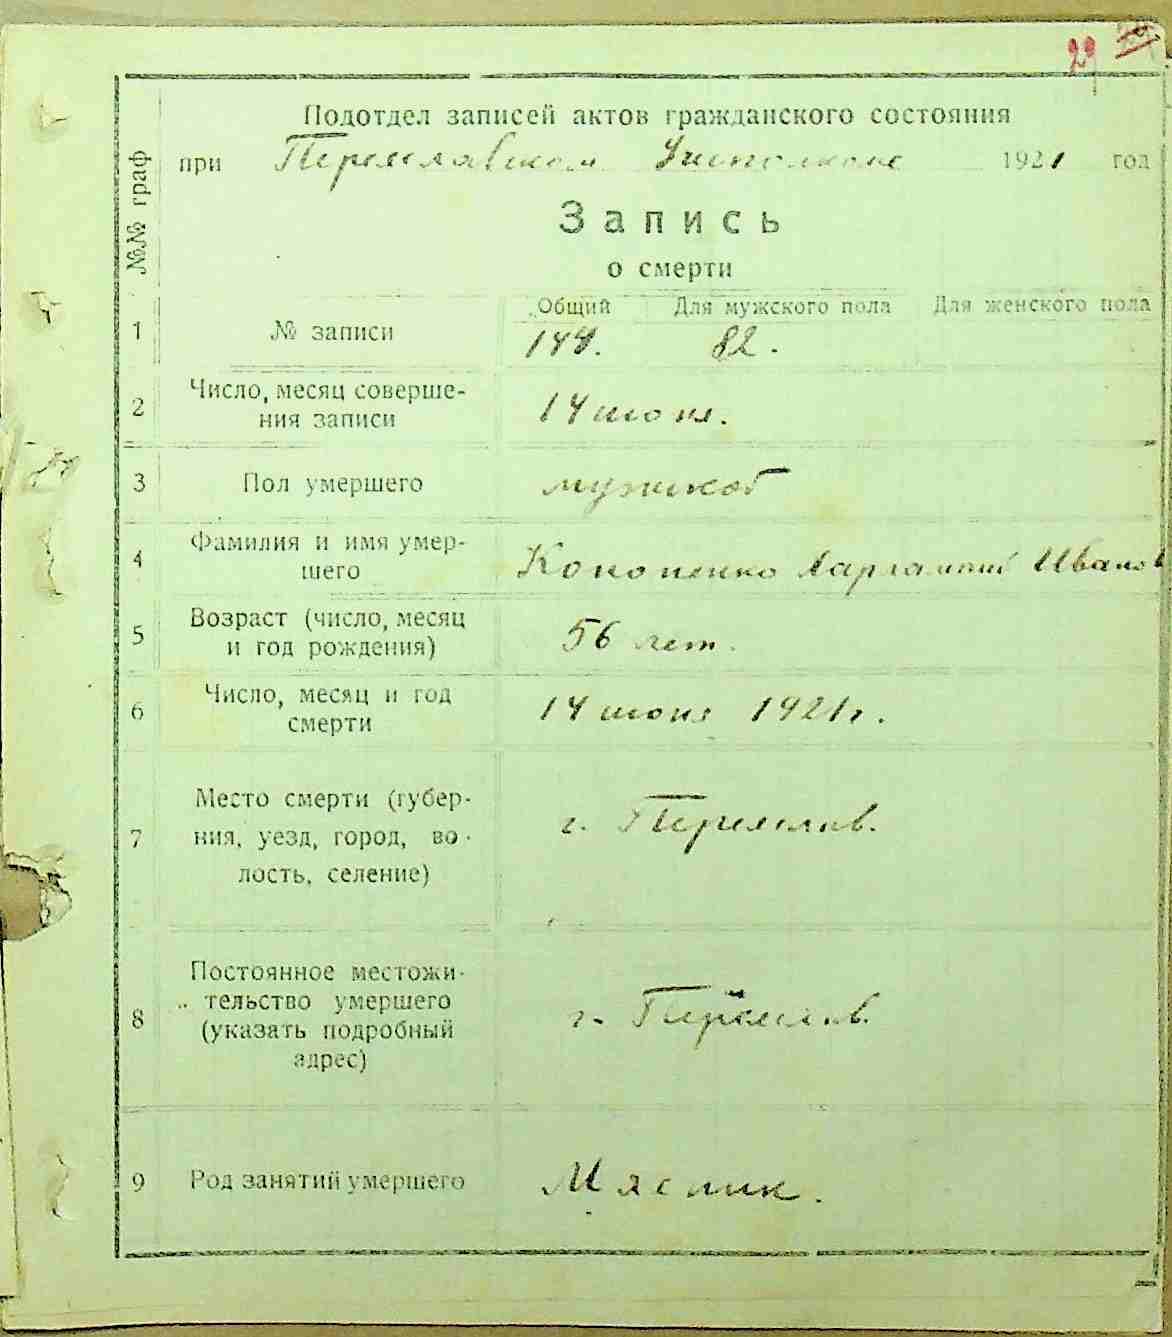 29
Подотдел записей актов гражданского состояния
при Переяславском Уисполкоме 1921 год
№№ граф
Запись
о смерти
Общий Для мужского пола Для женского пола
1 № записи 144. 82.
2 Число, месяц соверше-
ния записи 14 июня.
3 Пол умершего мужской
4 Фамилия и имя умер-
шего Кононенко Харлампий Иванов
5 Возраст (число, месяц
и год рождения) 56 лет.
6 Число, месяц и год
смерти 14 июня 1921 г.
7 Место смерти (губер-
ния, уезд, город, во-
лость, селение) г. Переяслав.
8 Постоянное местожи-
тельство умершего
(указать подробный
адрес) г. Переяслав.
9 Род занятий умершего Мясник.